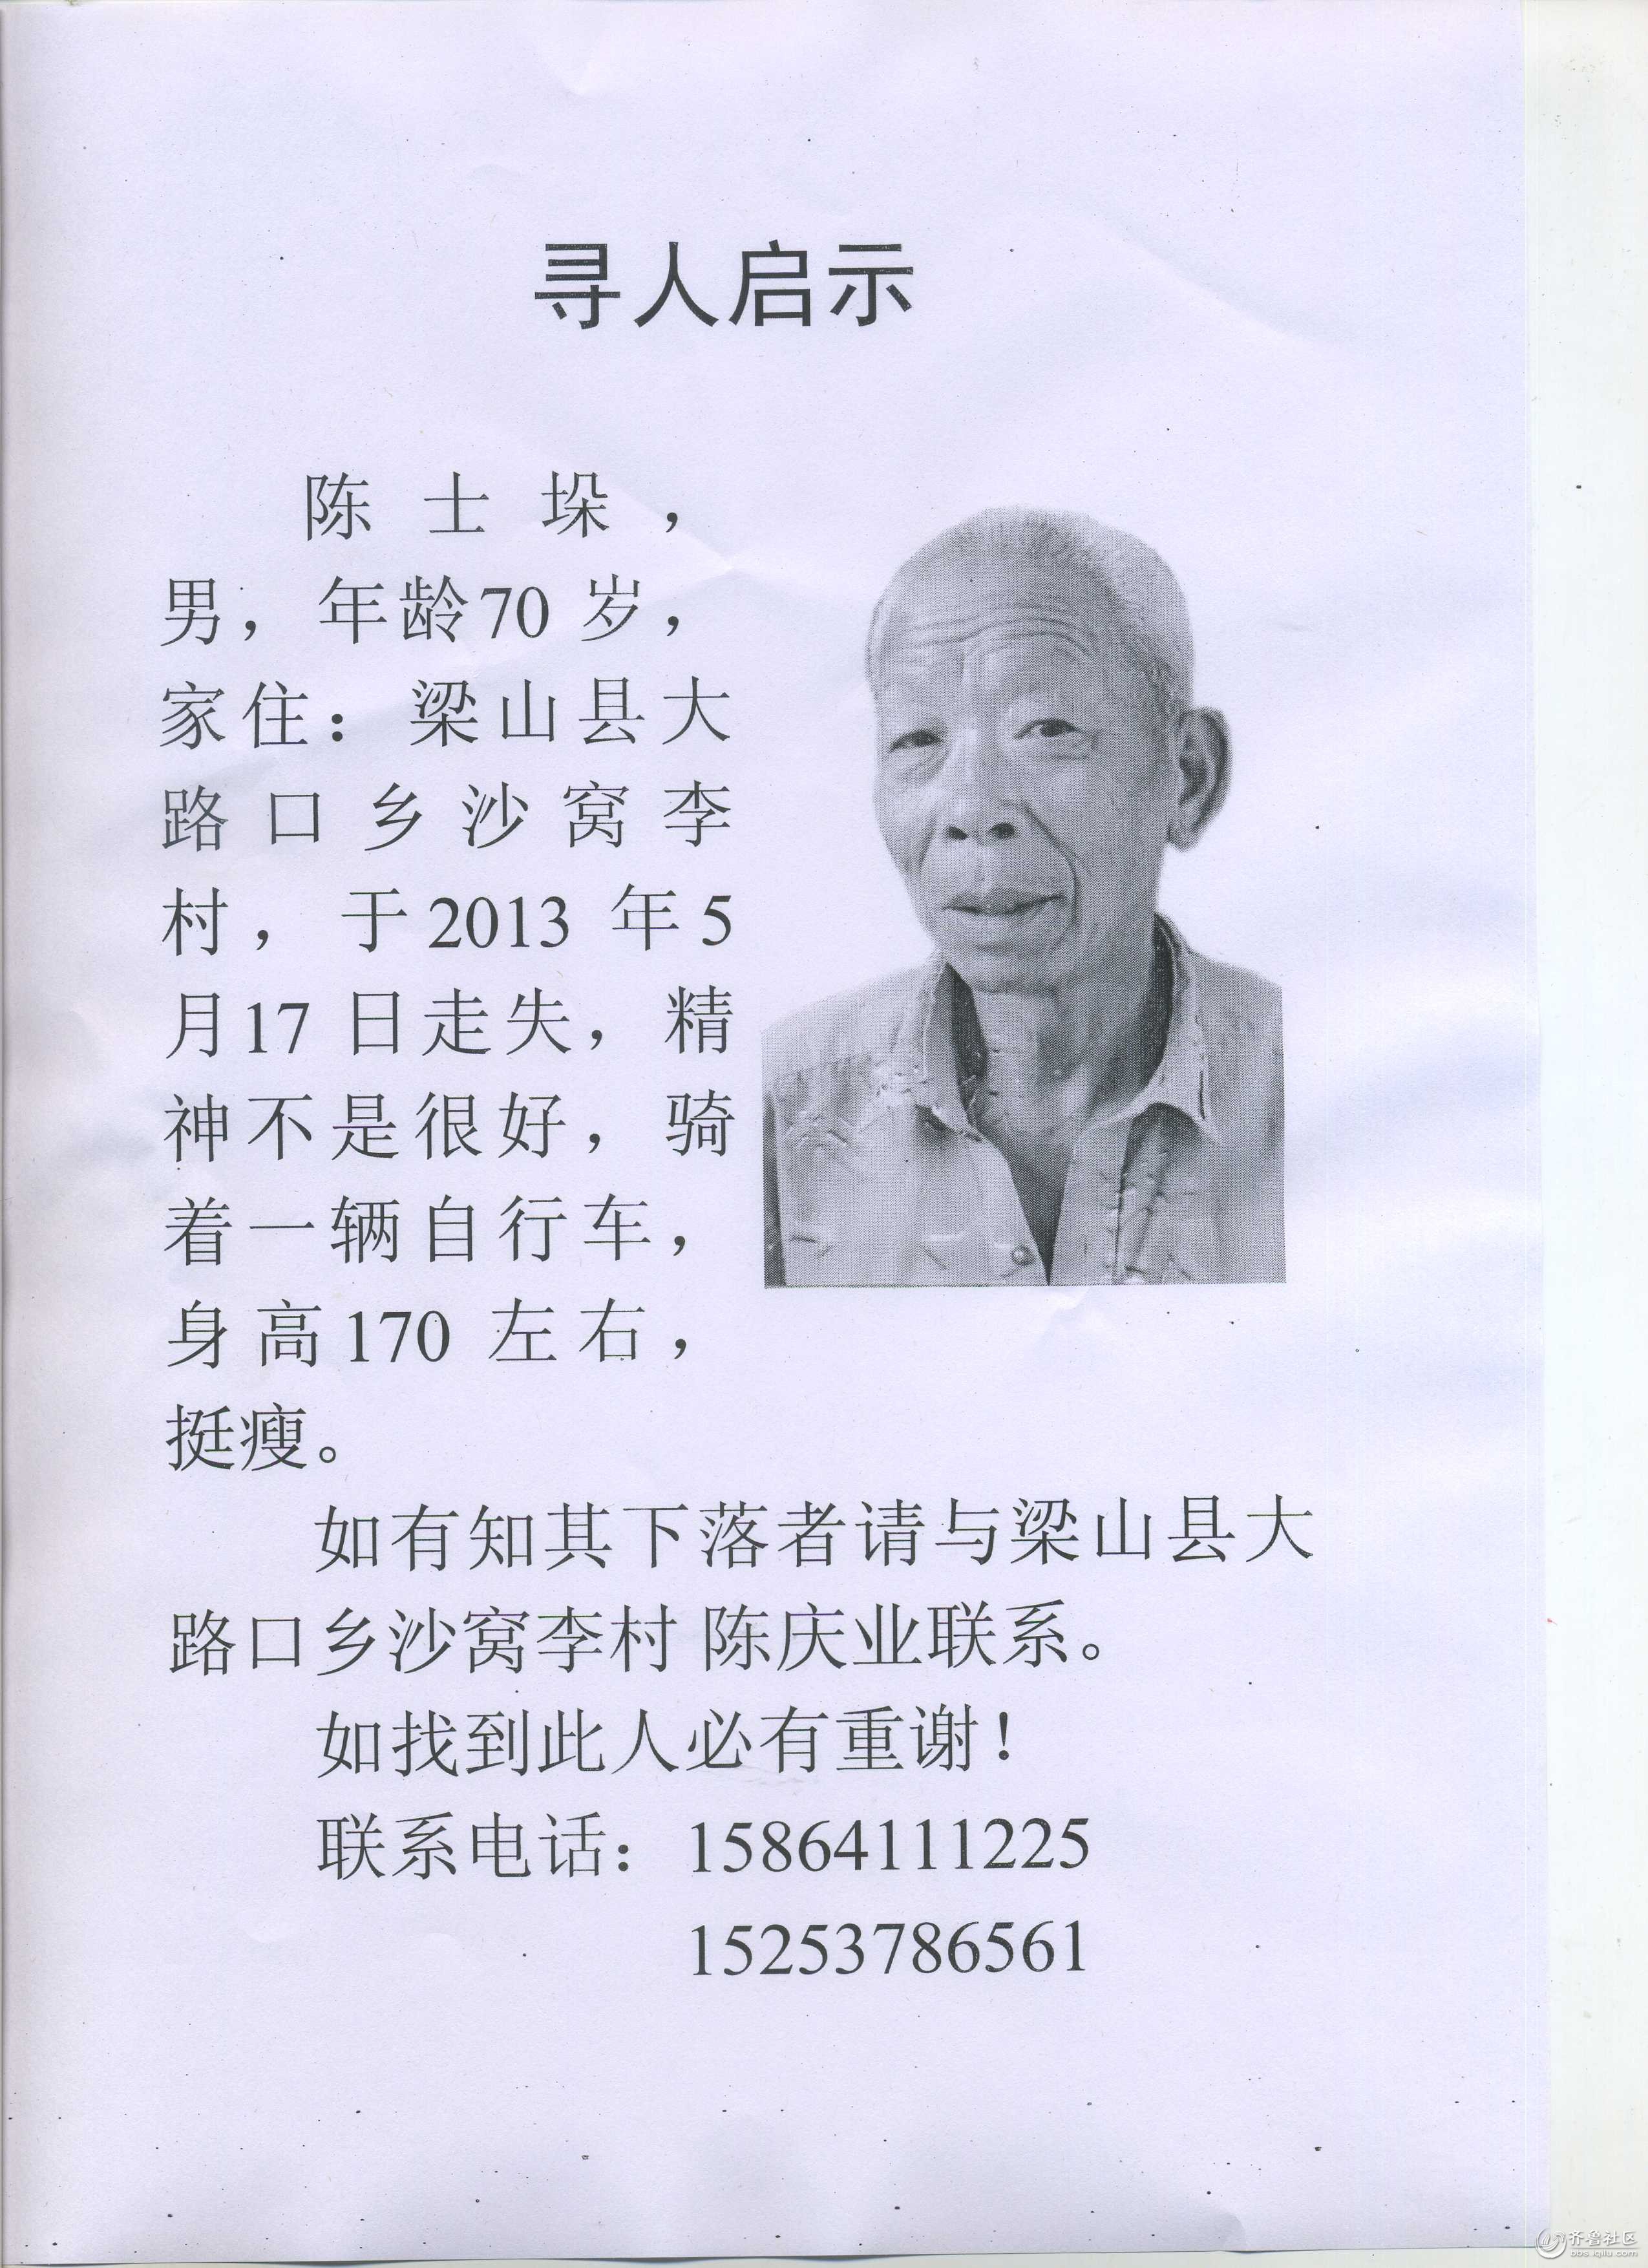 寻人启示
陈士垛，
男，年龄70 岁，
家住：梁山县大
路口乡沙窝李
村，于2013 年5
月17 日走失，精
神不是很好，骑
着一辆自行车，
身高170 左右，
挺瘦。
如有知其下落者请与梁山县大
路口乡沙窝李村 陈庆业联系。
如找到此人必有重谢！
联系电话：15864111225
15253786561
齐鲁社区
bbs.iqilu.com